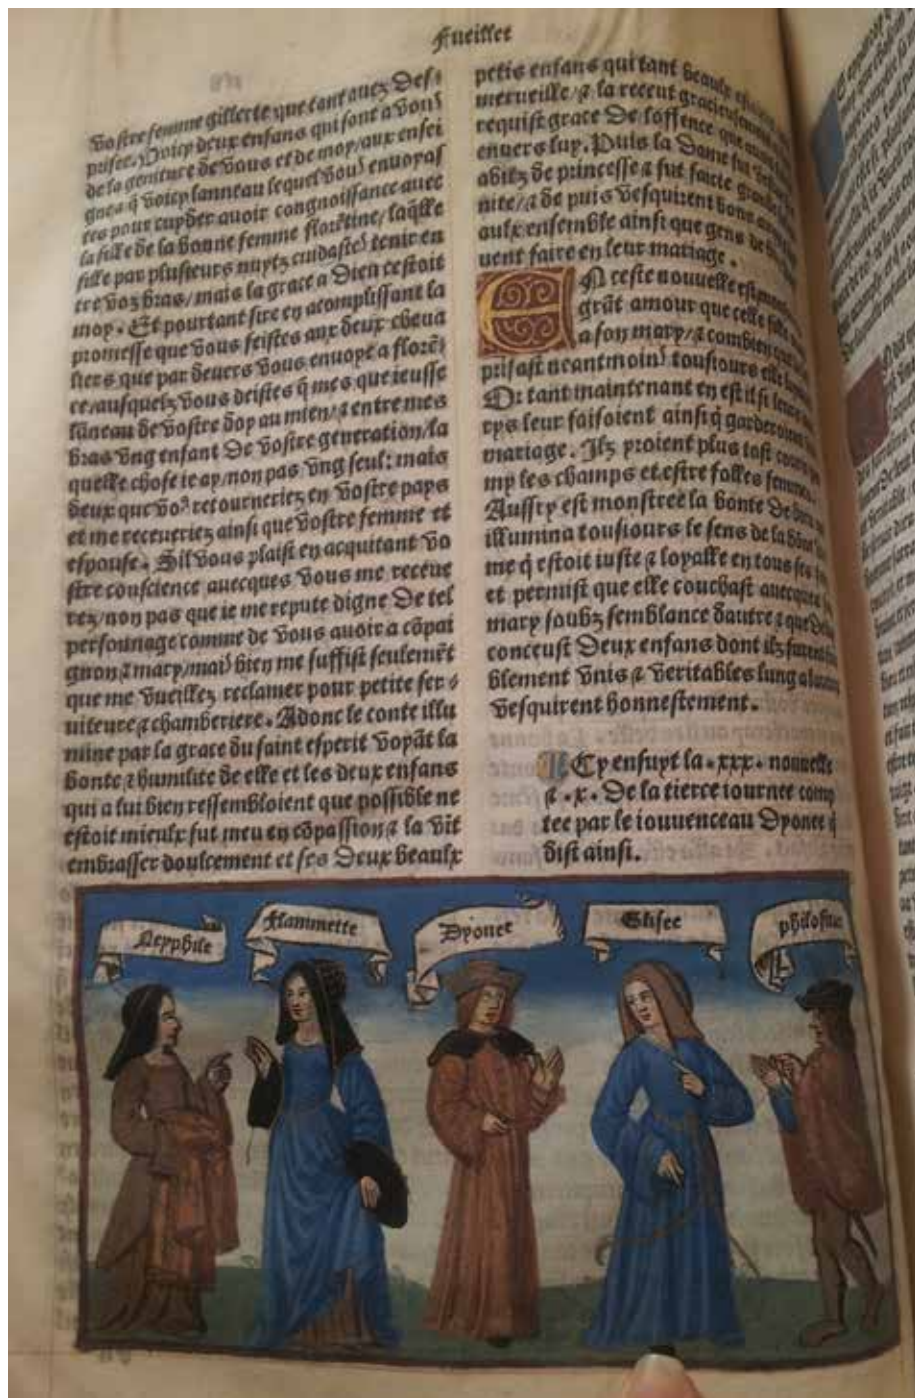 Fueillet
Vostre femme gillette que tant auez des⸗
prisee. Voicy deux enfans qui sont a vous
de la geniture de vous et de moy/aux ensei
gnes q̃ voicy lanneau lequel vous enuoyas
tes pour cuyder auoir congnoissance auec
la fille de la bonne femme florẽtine/laq̃lle
fille par plusieurs nuytz cuidastes tenir en
tre voz bras/mais la grace a Dieu cestoit
moy. Et pourtant sire en acomplissant la
promesse que vous feistes aux deux cheua
liers que par deuers vous enuoye a florẽ⸗
ce/ausquelz vous deistes q̃ mes que ieusse
lãneau de vostre doy au mien/⁊ entre mes
bras vng enfant de vostre generation/la
quelle chose ie ay/non pas vng seul: mais
deux que voꝰ retourneriez en vostre pays
et me receueriez ainsi que vostre femme et
espouse. Sil vous plaist en acquitant vo
stre conscience auecques vous me receue
rez/non pas que ie me repute digne de tel
personnage comme de vous auoir a cõpai
gnon ⁊ mary/mais bien me suffist seulemẽt
que me vueillez reclamer pour petite ser⸗
uiteure ⁊ chamberiere. Adonc le conte illu
mine par la grace du saint esperit voyãt la
bonte ⁊ humilite de elle et les deux enfans
qui a lui bien ressembloient que possible ne
estoit mieulx fut meu en cõpassion ⁊ la vit
embrasser doulcement et ses deux beaulx
petis enfans qui tant beaulx
merueille/⁊ la receut gracieusement
requist grace de loffence que
enuers luy. Puis la dame fut
abitz de princesse ⁊ fut faicte grande
nite/⁊ de puis vesquirent bons
aulx ensemble ainsi que gens de
uent faire en leur mariage.
EN ceste nouuelle est
grãt amour que celle
a son mary/⁊ combien
prisast neantmoins tousiours elle
Or tant maintenant en est il si leurs
rys leur faisoient ainsi q̃ garderoient
mariage. Ilz yroient plus tost
my les champs et estre folles femmes.
Aussy est monstree la bonte de
illumina tousiours le sens de la
me q̃ estoit iuste ⁊ loyalle en tous
et permist que elle couchast auecques
mary soubz semblance dautre ⁊ que
conceust deux enfans dont ilz furent
blement vnis ⁊ veritables lung a
vesquirent honnestement.
Cy ensuyt la .xxx. nouuelle
⁊ .x. de la tierce iournee comp
tee par le iouuenceau Dyonee q̃
dist ainsi.
Neyphile
Flammette
Dyonee
Elisee